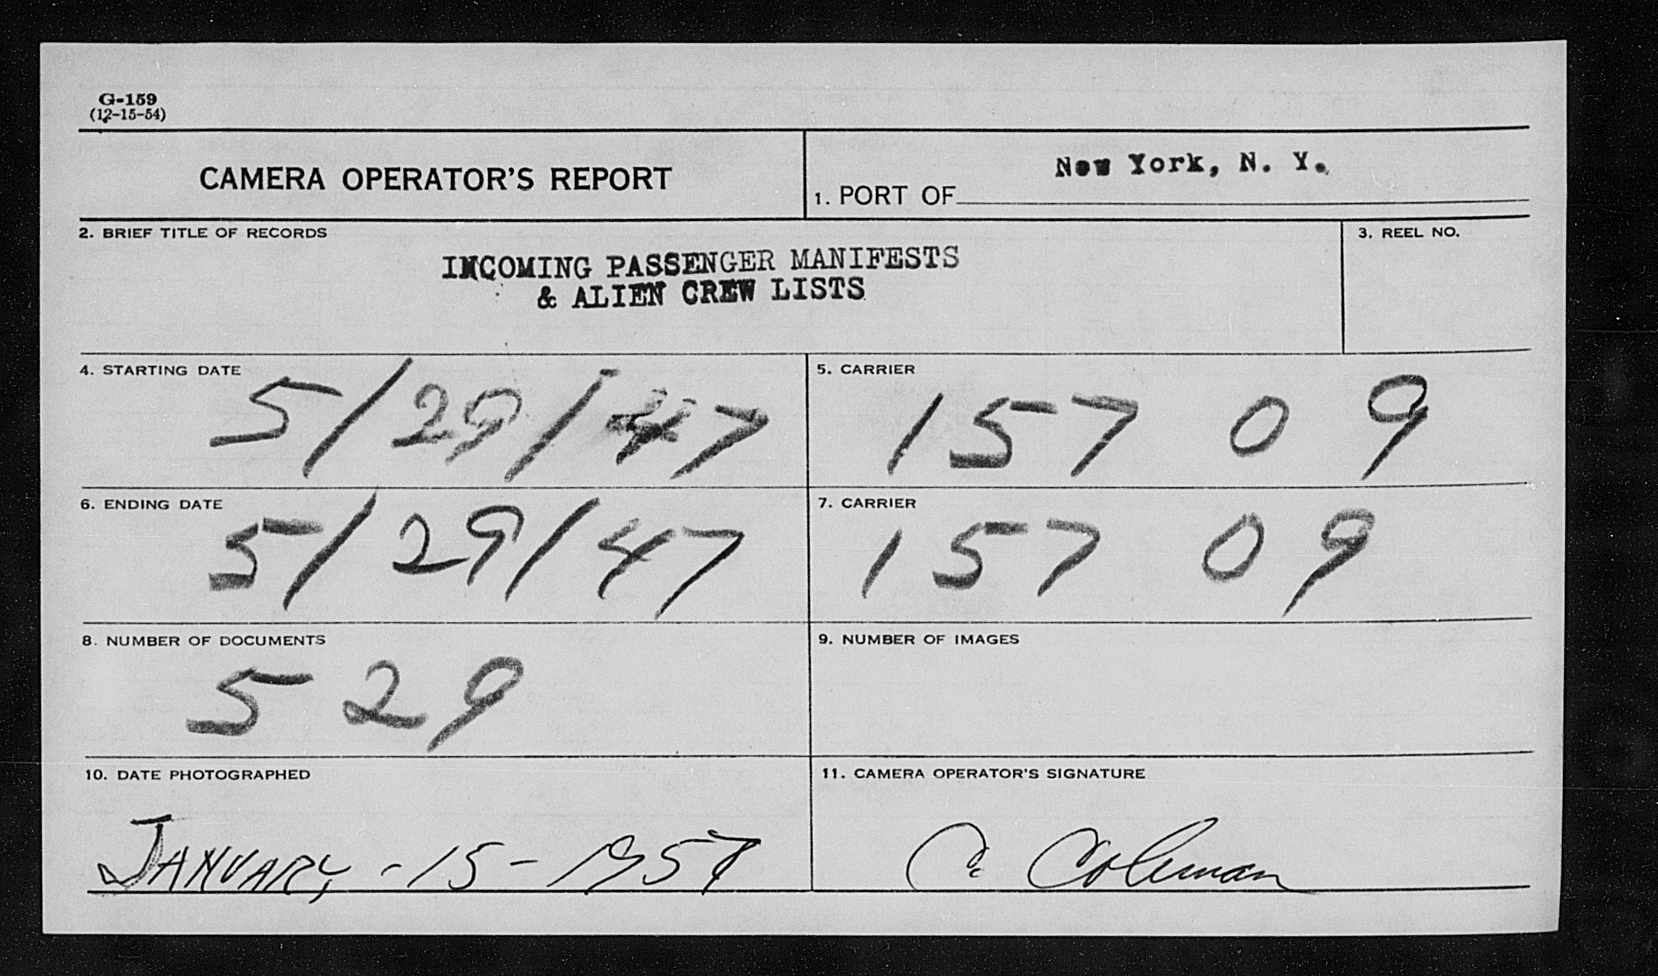 G-159
(12-15-54)
CAMERA OPERATOR'S REPORT
New York, N. Y.
1. PORT OF
2. BRIEF TITLE OF RECORDS
3. REEL NO.
INCOMING PASSENGER MANIFESTS
& ALIEN CREW LISTS
4. STARTING DATE
5/29/47
5. CARRIER
157 09
6. ENDING DATE
5/29/47
7. CARRIER
157 09
8. NUMBER OF DOCUMENTS
529
9. NUMBER OF IMAGES
10. DATE PHOTOGRAPHED
JANUARY - 15 - 1957
11. CAMERA OPERATOR'S SIGNATURE
C. Coleman